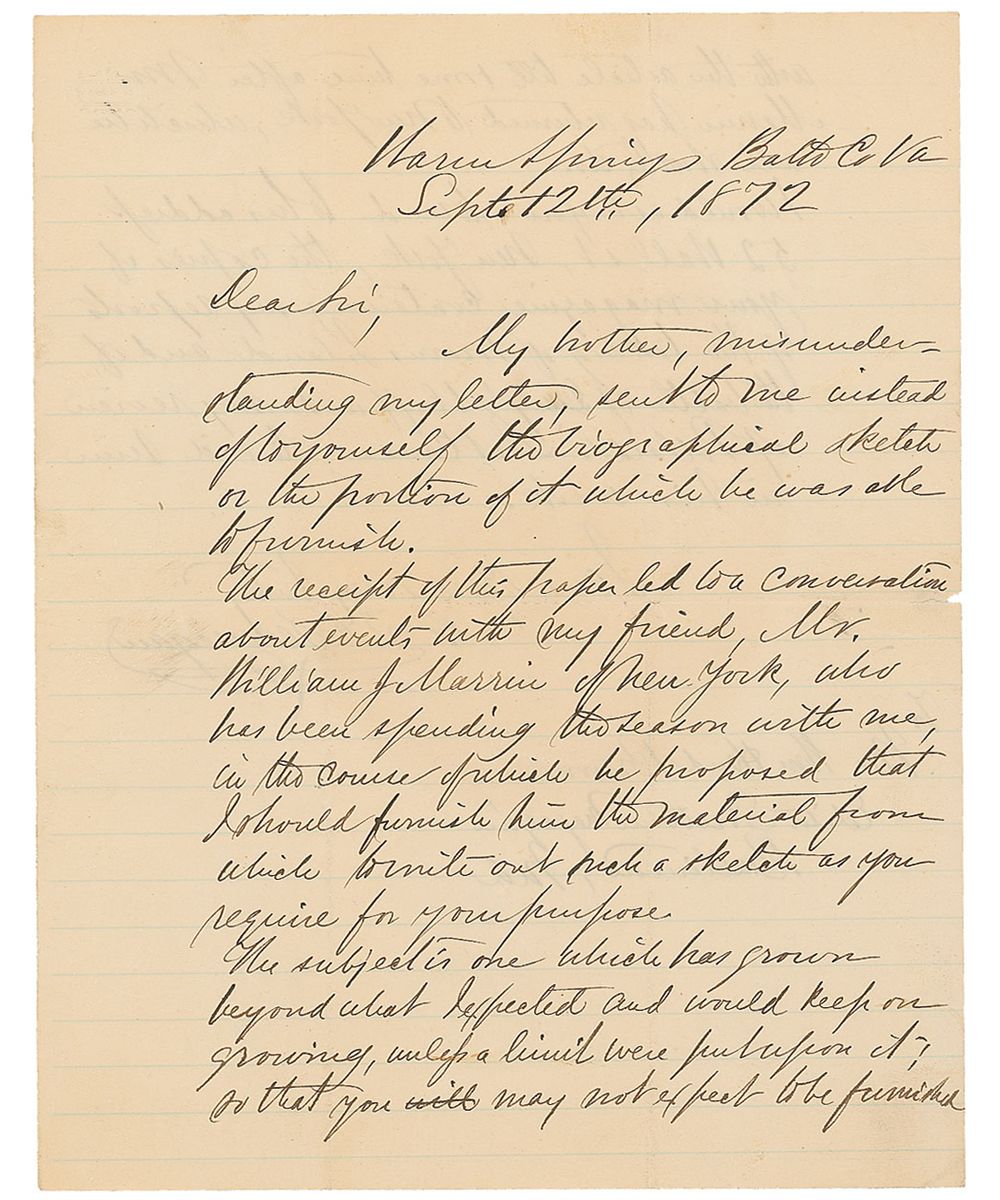 Warm Springs Bath Co Va
Sept. 12th, 1872
Dear Sir,
My brother, misunder-
standing my letter, sent to me instead
of to yourself the biographical sketch
or the portion of it which he was able
to furnish.
The receipt of this paper led to a conversation
about events with my friend, Mr.
William J Marrin of New York, who
has been spending the season with me,
in the course of which he proposed that
I should furnish him the material from
which to write out such a sketch as you
require for your purpose.
The subject is one which has grown
beyond what I expected and would keep on
growing, unless a limit were put upon it;
so that you will may not expect to be furnished